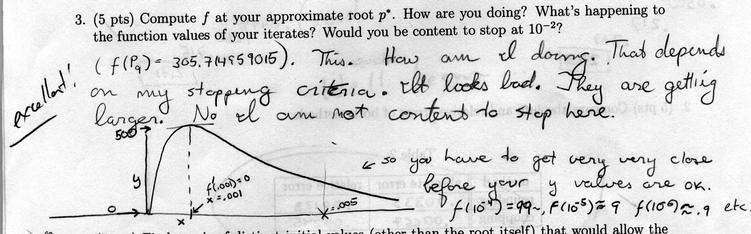 3. (5 pts) Compute f at your approximate root p*. How are you doing? What's happening to
the function values of your iterates? Would you be content to stop at 10⁻²?
(f(P₉) = 305.714959015). This. How am I doing. That depends
on my stopping criteria. It looks bad. They are getting
larger. No I am not content to stop here.
excellent!
500
y
0
x
f(.001)=0
x=.001
x=.005
← so you have to get very very close
before your y values are OK.
f(10⁻⁴)=99~, f(10⁻⁵)≈9 f(10⁻⁶)≈.9 etc.
initial values (other than the root itself) that would allow the